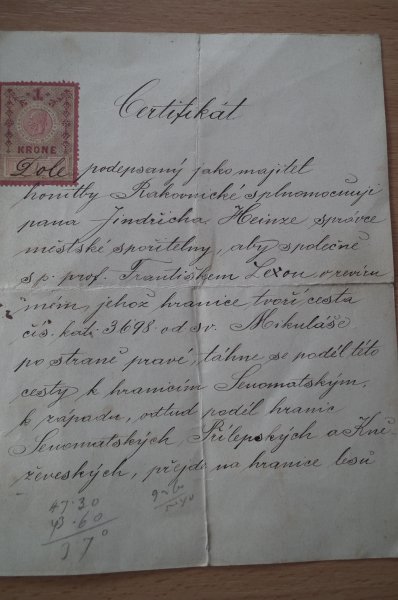 Certifikát
1
KRONE
Dole podepsaný jako majitel
honitby Rakovnické splnomocnuji
pana Jindřicha Heinze správce
městské spořitelny, aby společně
s p. prof. Františkem Lexou v revíru
mém, jehož hranice tvoří cesta
čís. kat. 3698. od sv. Mikuláše
po straně pravé, táhne se podél této
cesty k hranicím Senomatským,
k západu, odtud podél hranic
Senomatských Přílepských a Kně
ževeských, přejde na hranice lesů
47.30
13.60